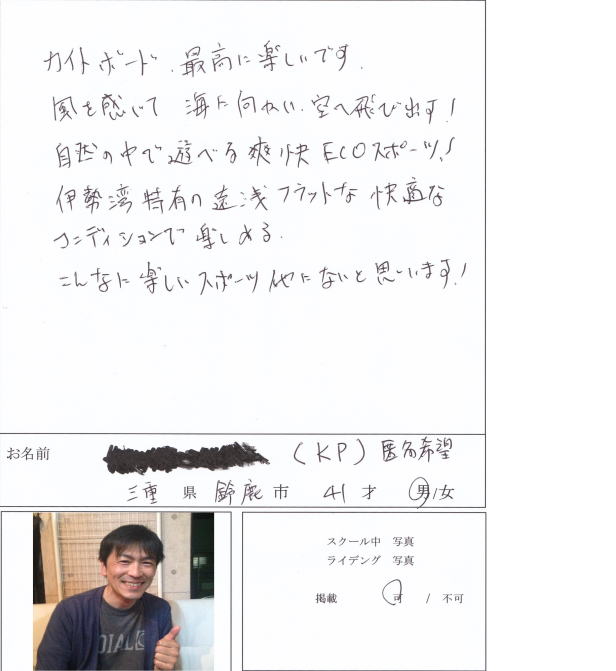 カイトボード、最高に楽しいです。
風を感じて 海に向かい、空へ飛び出す!
自然の中で遊べる爽快ECOスポーツ!
伊勢湾特有の遠浅フラットな 快適な
コンディションで楽しめる。
こんなに楽しいスポーツ他にないと思います!
お名前 (KP) 匿名希望
三重 県 鈴鹿 市 41 才 男/女
DIALK
スクール中 写真
ライデング 写真
掲載 可 / 不可